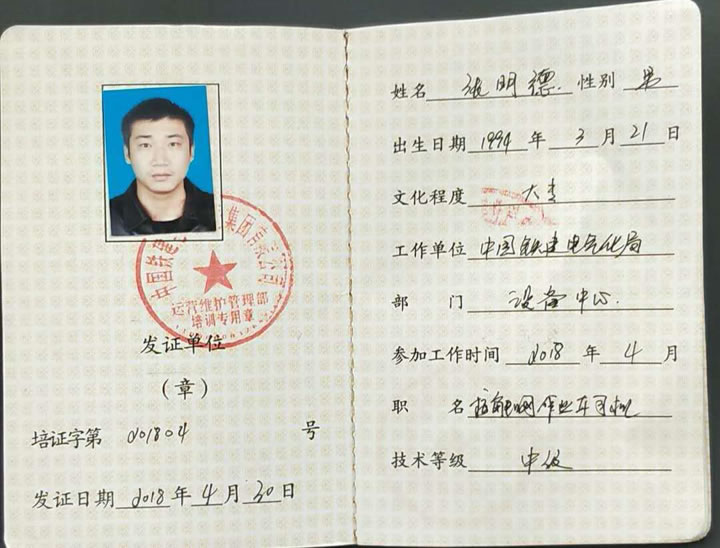 中国铁建电气化局集团有限公司
运营维护管理部
培训专用章
发证单位
(章)
培证字第 201804 号
发证日期 2018 年 4 月 30 日
姓名 张明德 性别 男
出生日期 1994 年 3 月 21 日
文化程度 大专
工作单位 中国铁建电气化局
部门 设备中心
参加工作时间 2018 年 4 月
职名 接触网作业车司机
技术等级 中级